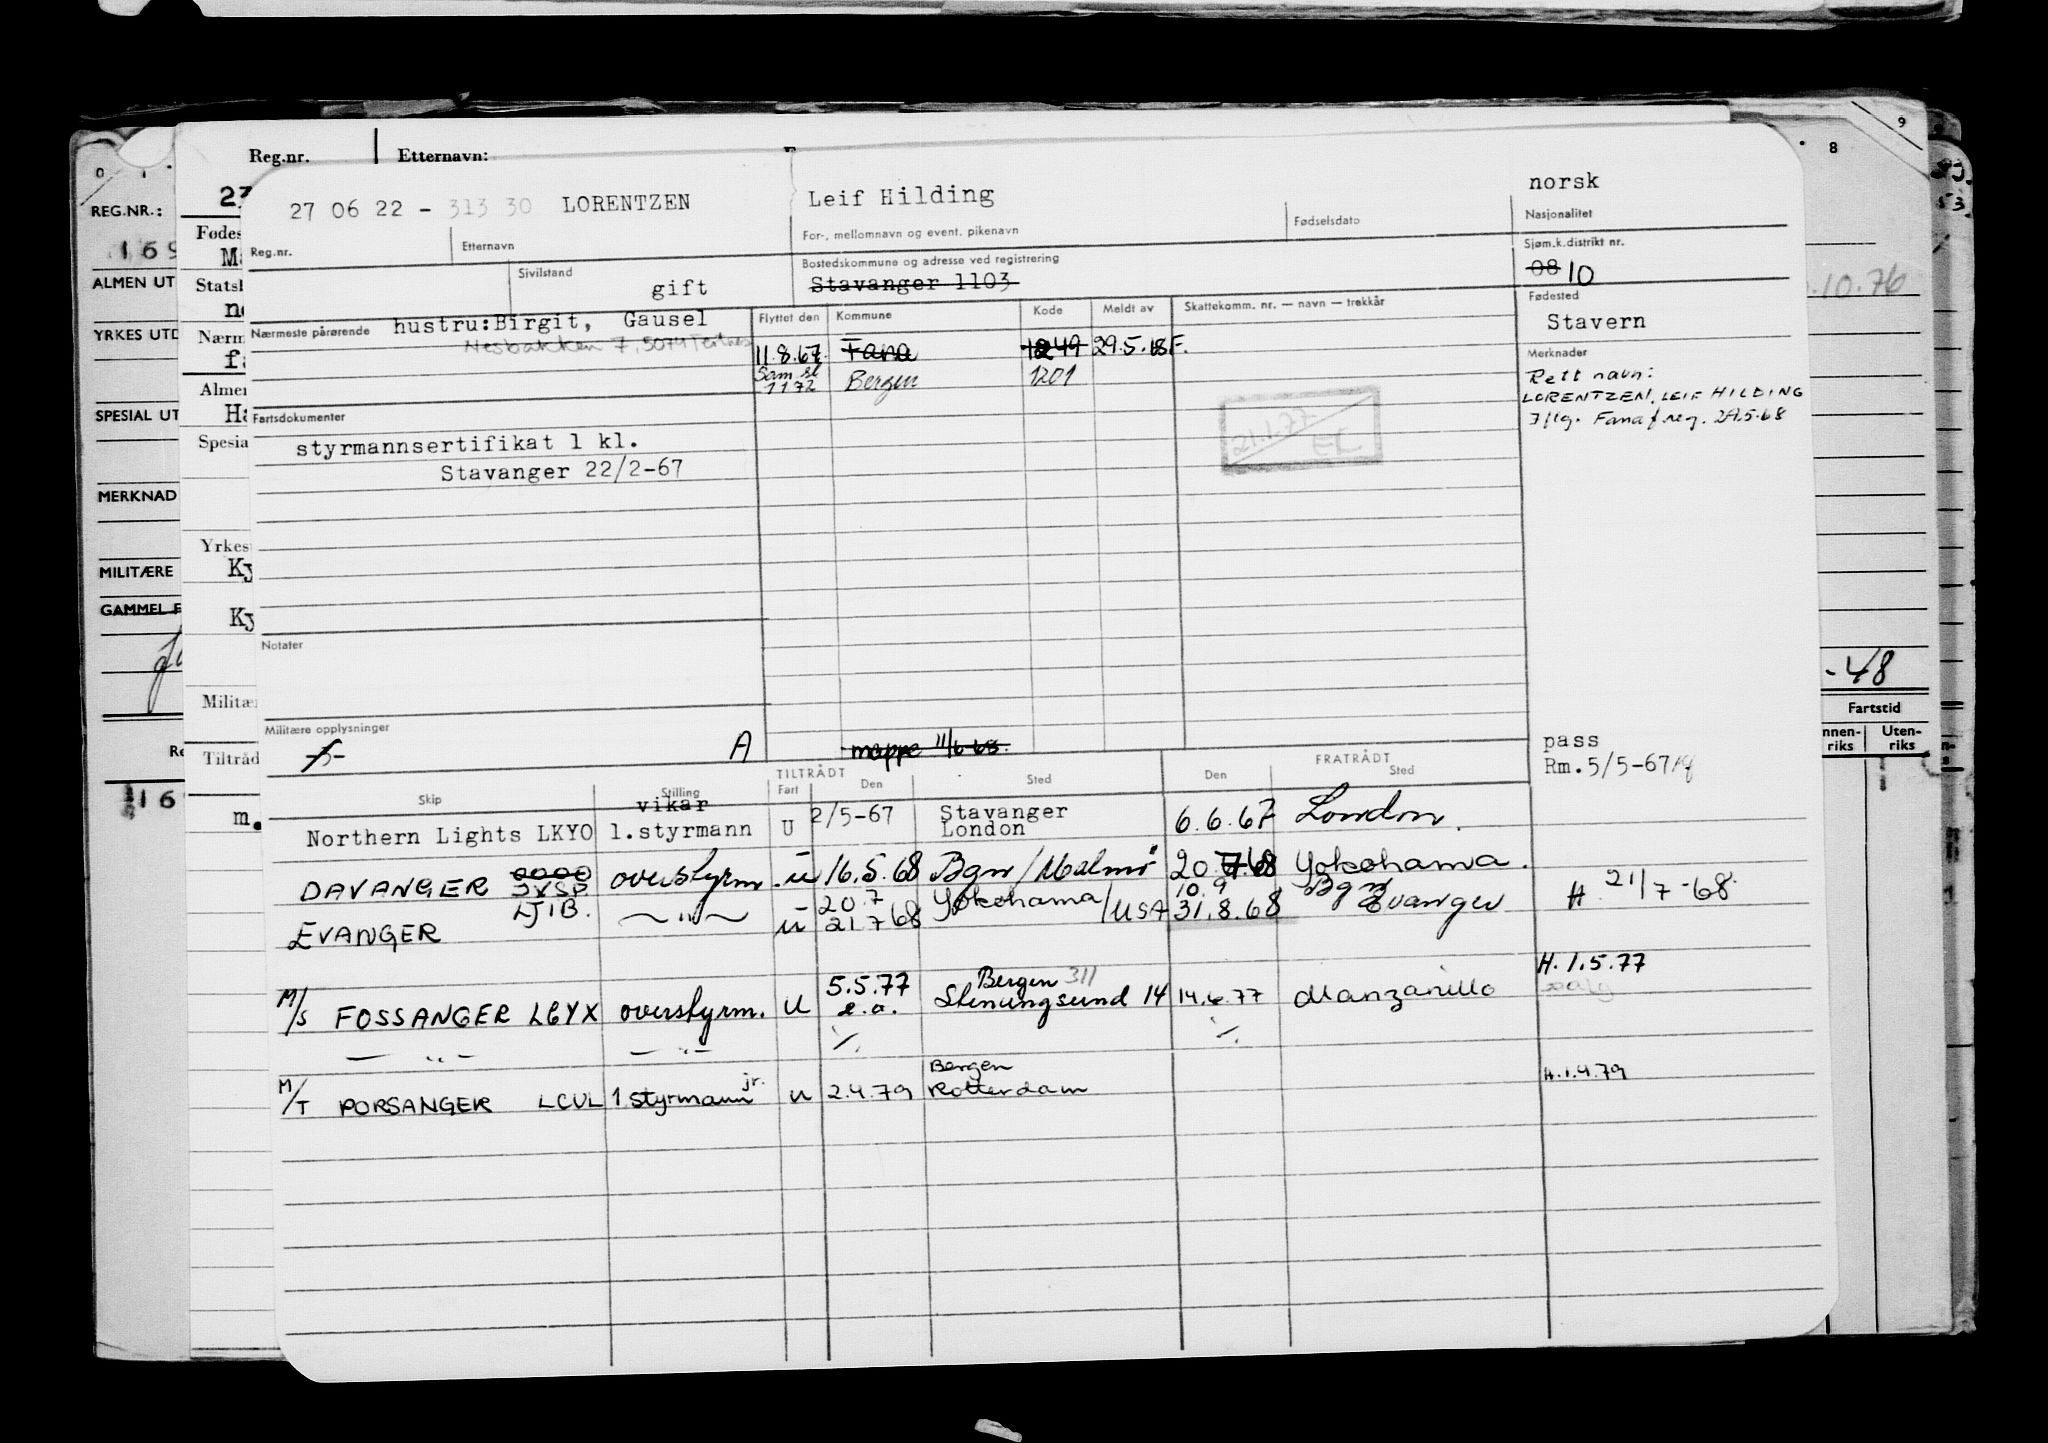 Reg.nr. Etternavn:
0 1 9 8
REG.NR.: 23
27 06 22 - 313 30 LORENTZEN Leif Hilding norsk
Reg.nr. Etternavn For-, mellomnavn og event. pikenavn Fødselsdato Nasjonalitet
169 Sivilstand Bostedskommune og adresse ved registrering Sjøm.k.distrikt nr.
gift Stavanger 1103 08 10
ALMEN UT Statsl Fødested
Nærmeste pårørende hustru:Birgit, Gausel Flyttet den Kommune Kode Meldt av Skattekomm. nr. — navn — trekkår Stavern
Nesbakken 7, 5074
.10.76
YRKES UTD
11.8.67. Fana 1249 29.5.68 F. Merknader
1.1.72 Bergen 1201 Rett navn:
LORENTZEN, LEIF HILDING
Iflg. Fana f.reg. 29.5.68
SPESIAL UT Fartsdokumenter
21.1.77
styrmannsertifikat 1 kl.
Stavanger 22/2-67
MERKNAD
MILITÆRE Ky
GAMMEL Ky
Notater
-48
Fartstid
Uten-
riks
Militære opplysninger
A mappe 11/6 68. pass
Rm.5/5-67
TILTRÅDT FRATRÅDT
Skip Stilling Fart Den Sted Den Sted
Northern Lights LKYO vikar 1.styrmann U 2/5-67 Stavanger London 6.6.67 London.
DAVANGER JXSP overstyrm. u 16.5.68 Bgn/Malmö 20.7.68 Yokohama.
EVANGER LJIB. — " — u 20.7 21.7 68 Yokohama/USA 10.9 31.8.68 Bgn Evanger H 21/7-68.
M/S FOSSANGER LGYX overstyrm. U 5.5.77 e.a. Bergen 311 Stenungsund 14 14.6.77 Manzanillo H.1.5.77
— " — — " — ./. ./.
M/T PORSANGER LCUL 1.styrmann jr. u 2.4.79 Bergen Rotterdam H.1.4.79